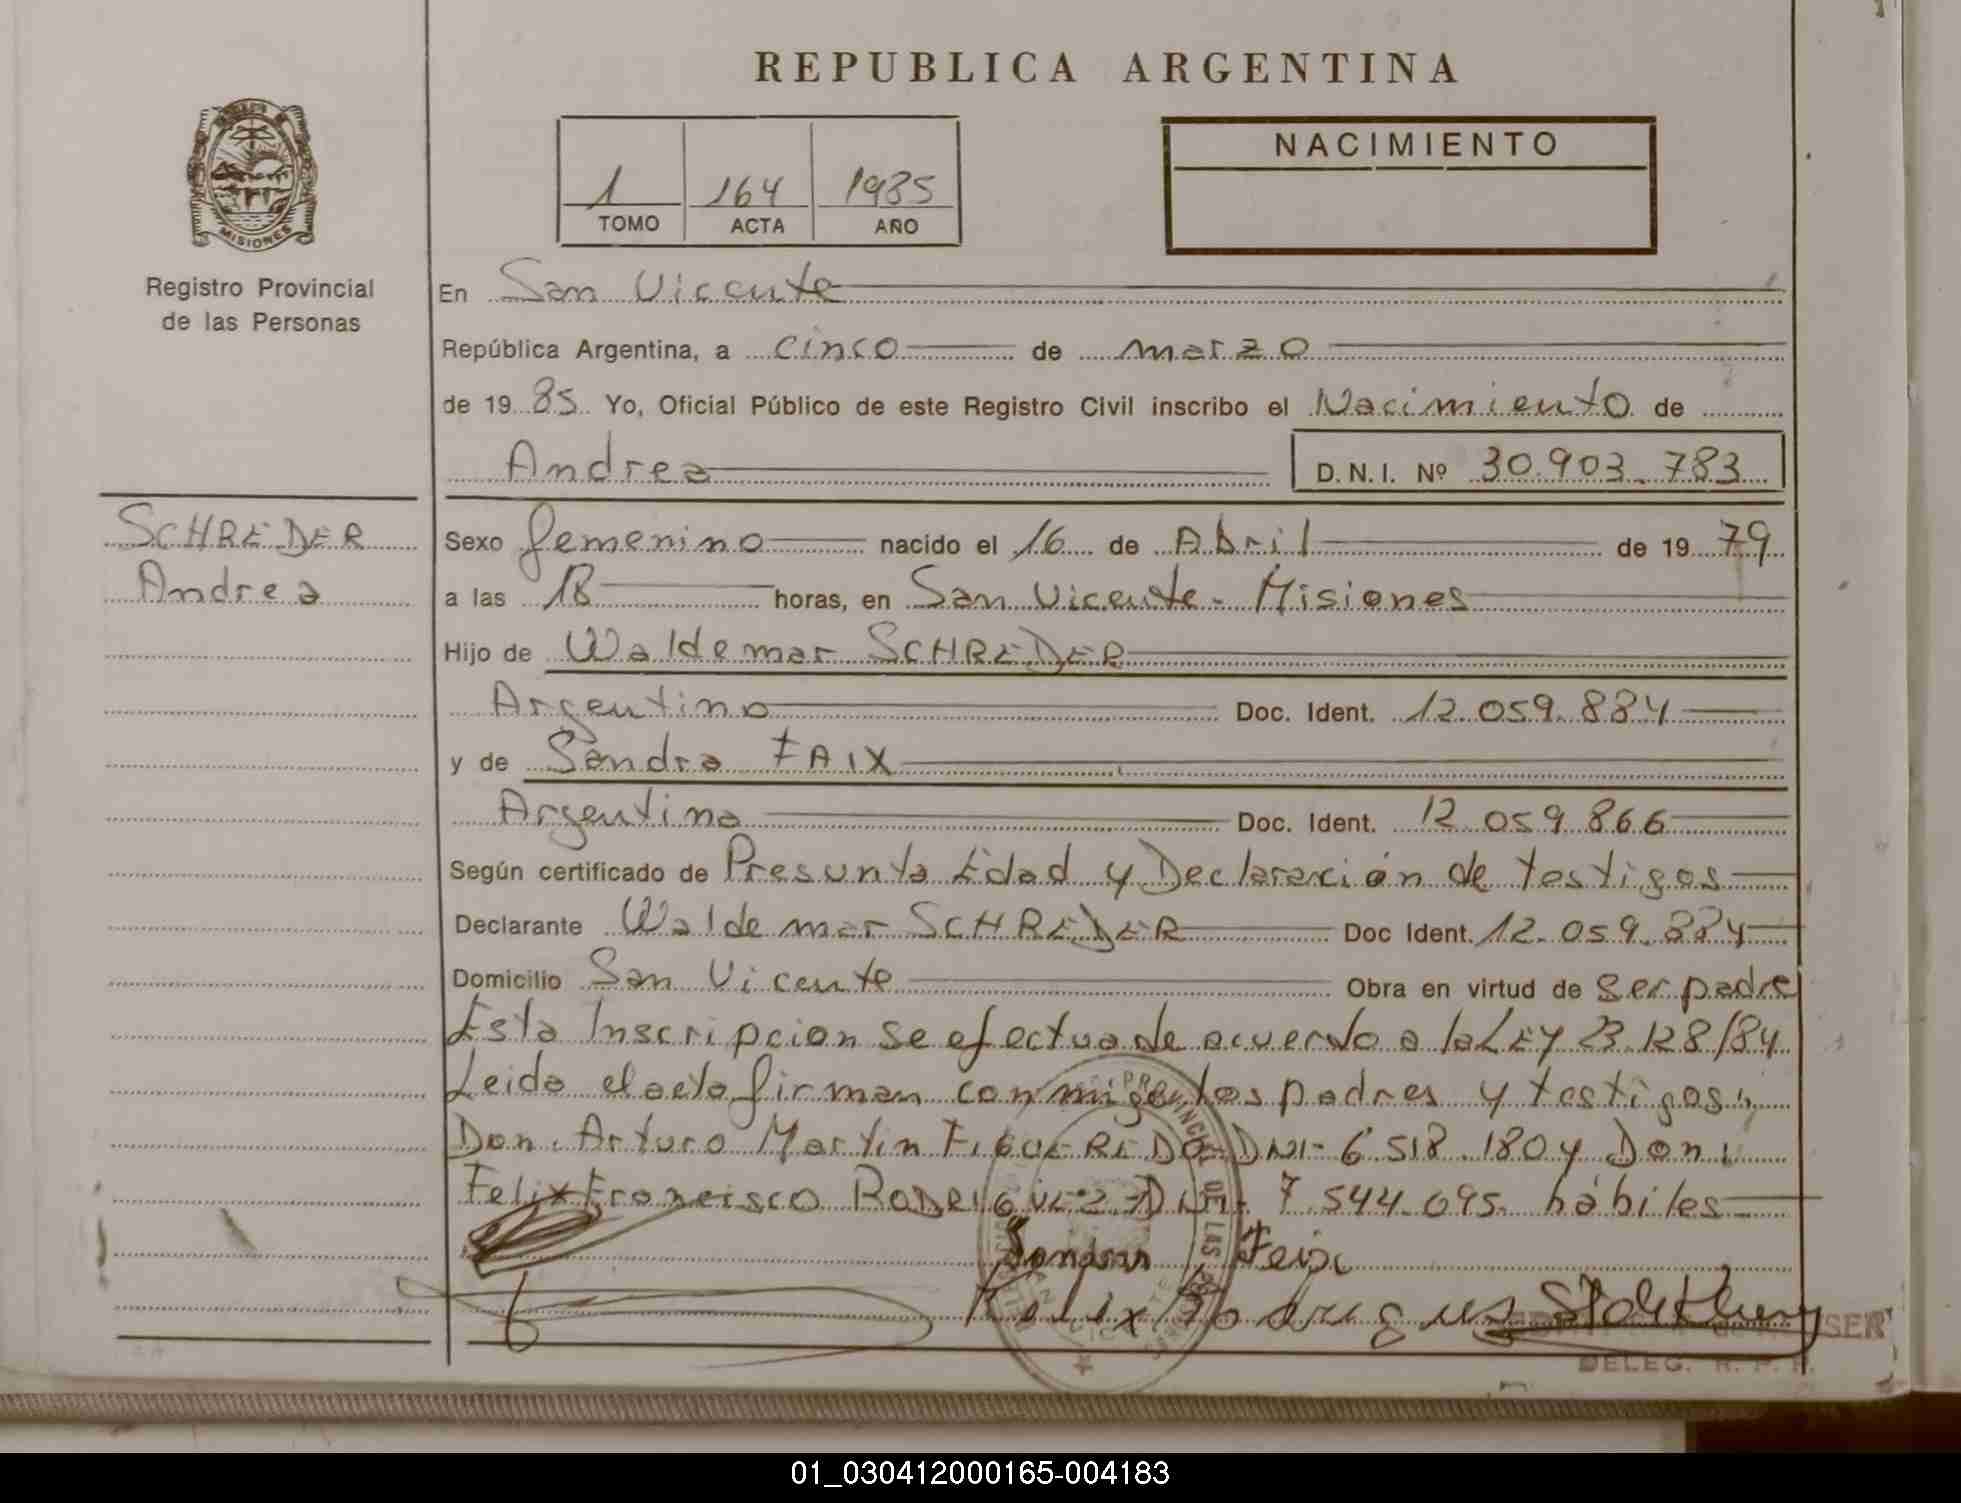 REPUBLICA ARGENTINA
NACIMIENTO
1 164 1985
TOMO ACTA AÑO
MISIONES
Registro Provincial
de las Personas
En San Vicente
República Argentina, a cinco de marzo
de 19 85 Yo, Oficial Público de este Registro Civil inscribo el Nacimiento de
Andrea D.N.I. Nº 30.903.783
SCHREDER
Andrea
Sexo femenino nacido el 16 de Abril de 19 79
a las 18 horas, en San Vicente - Misiones
Hijo de Waldemar SCHREDER
Argentino Doc. Ident. 12.059.884
y de Sandra FAIX
Argentina Doc. Ident. 12.059.866
Según certificado de Presunta Edad y Declaración de testigos
Declarante Waldemar SCHREDER Doc Ident. 12.059.884
Domicilio San Vicente Obra en virtud de ser padre
Esta Inscripcion se efectua de acuerdo a la LEY 23.128/84
Leida el acta firman conmigo los padres y testigos,
Don Arturo Martin FIGUEREDO - DNI - 6.518.180 y Don
Felix Francisco RODRIGUEZ - DNI - 7.544.095. hábiles
Sandra Feix
Felix Rodrigues
DELEG. R. P. P.
01_030412000165-004183